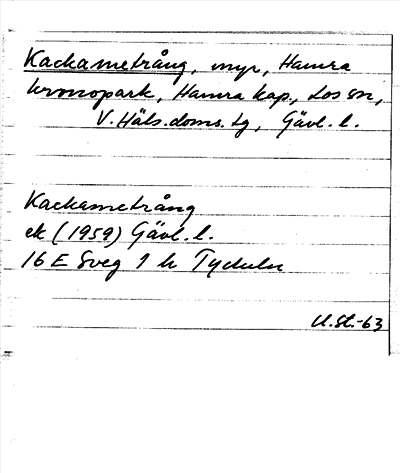 Kackametrång, myr, Hamra
kronopark, Hamra kap., Los sn,
V. Häls. doms. tg, Gävl. l.
Kackametrång
ek (1959) Gävl. l.
16 E Sveg 9 h Tyckeln
U.St.-63